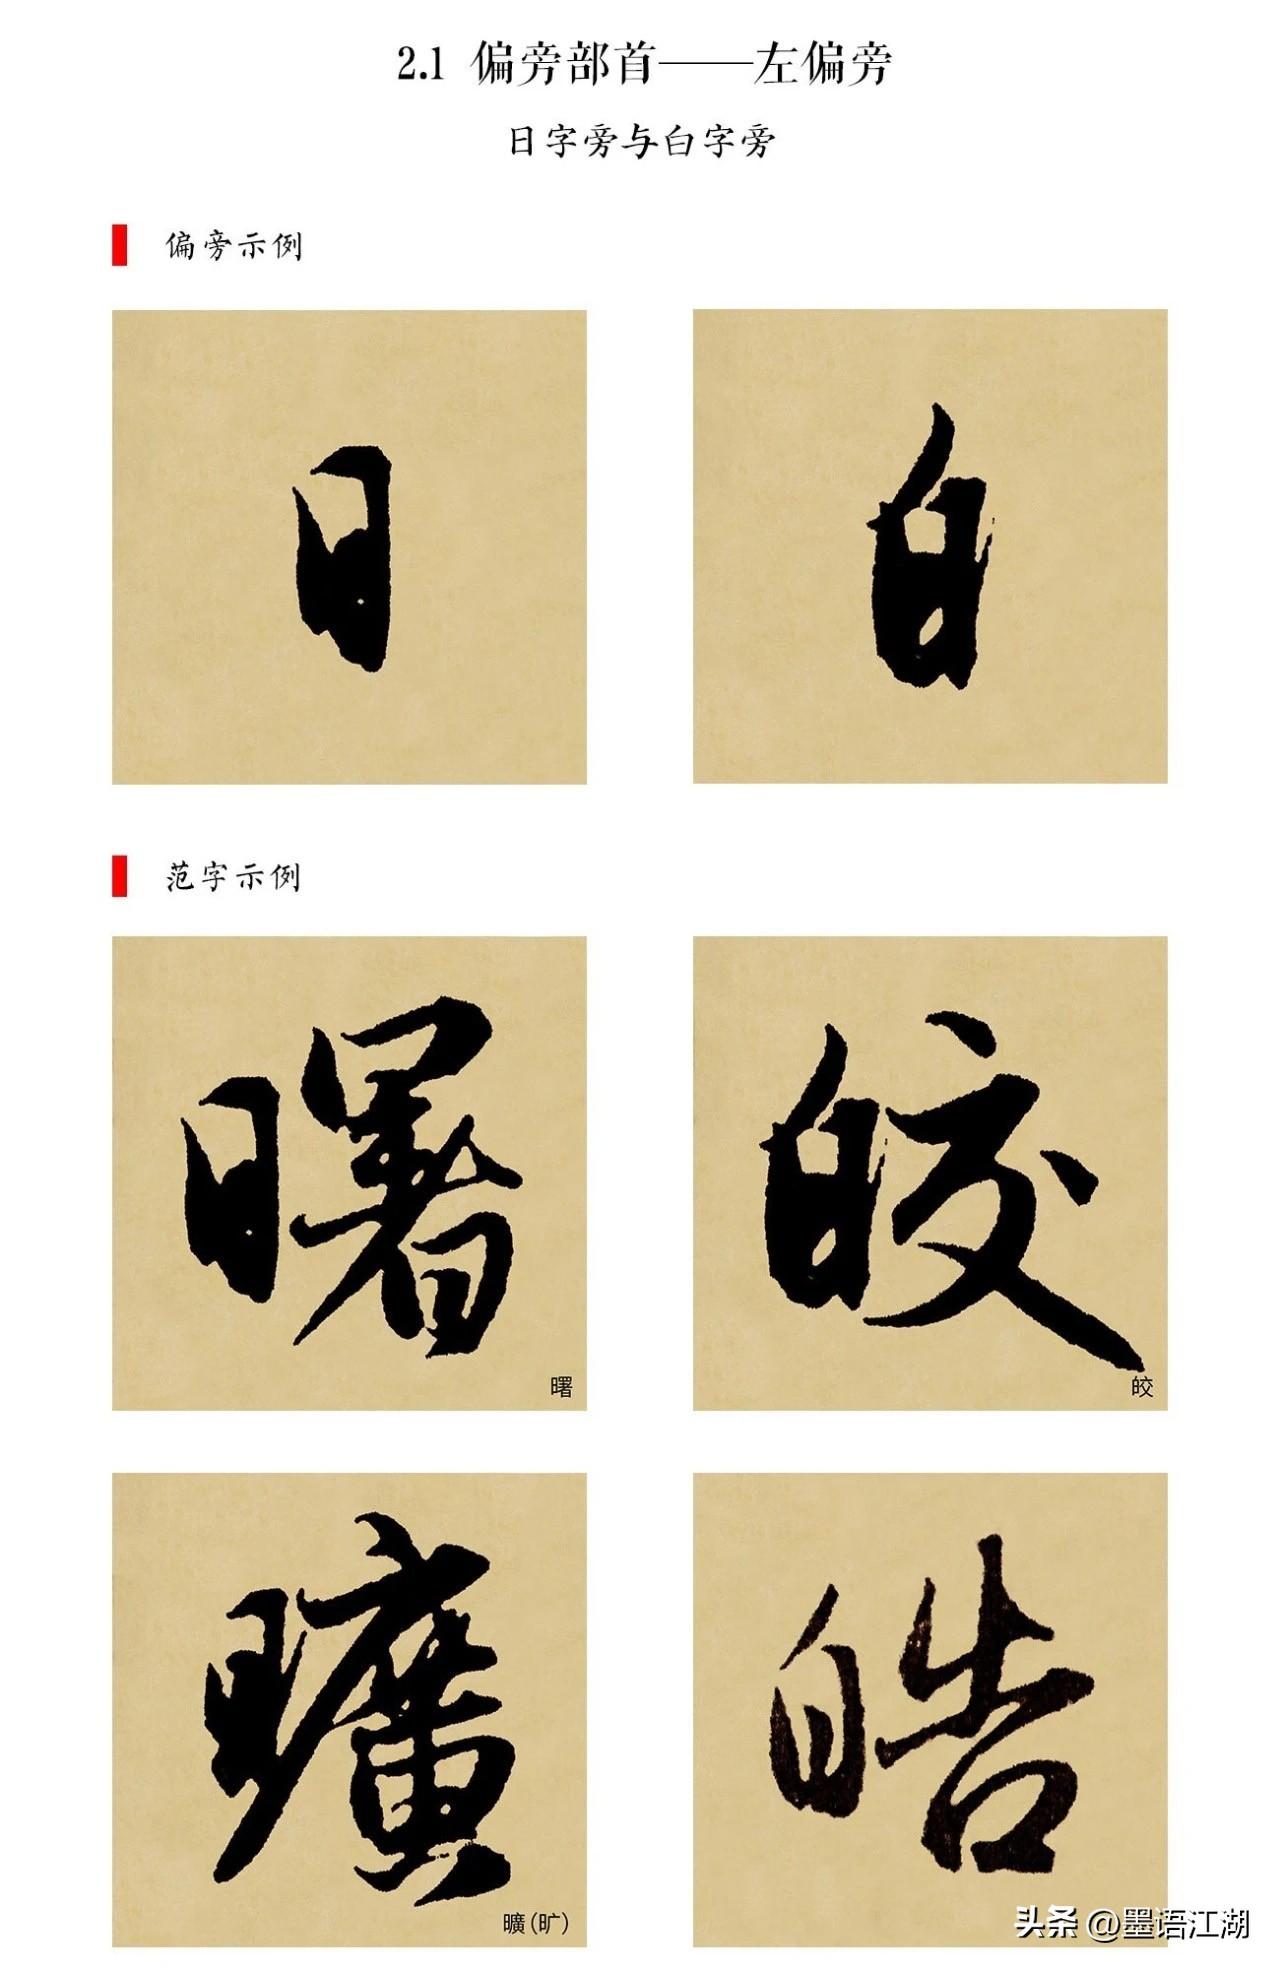 2.1 偏旁部首——左偏旁
日字旁与白字旁
偏旁示例
日
白
范字示例
曙
曙
皎
皎
曠
曠(旷)
皓
头条 @墨语江湖